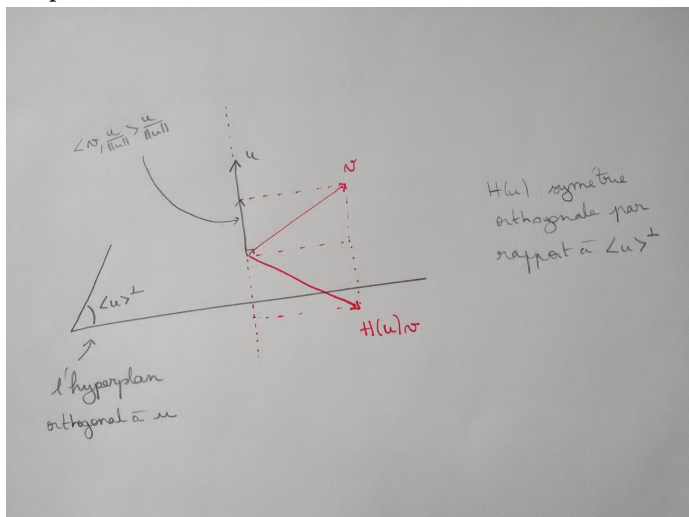 <v, u/||u||> u/||u||
u
v
H(u) symétrie
orthogonale par
rapport à <u>⊥
<u>⊥
H(u)v
l'hyperplan
orthogonal à u